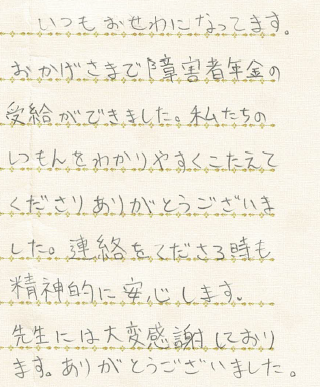 いつもおせわになってます。
おかげさまで障害者年金の
受給ができました。私たちの
しつもんをわかりやすくこたえて
くださりありがとうございま
した。連絡をくださる時も
精神的に安心します。
先生には大変感謝しており
ます。ありがとうございました。